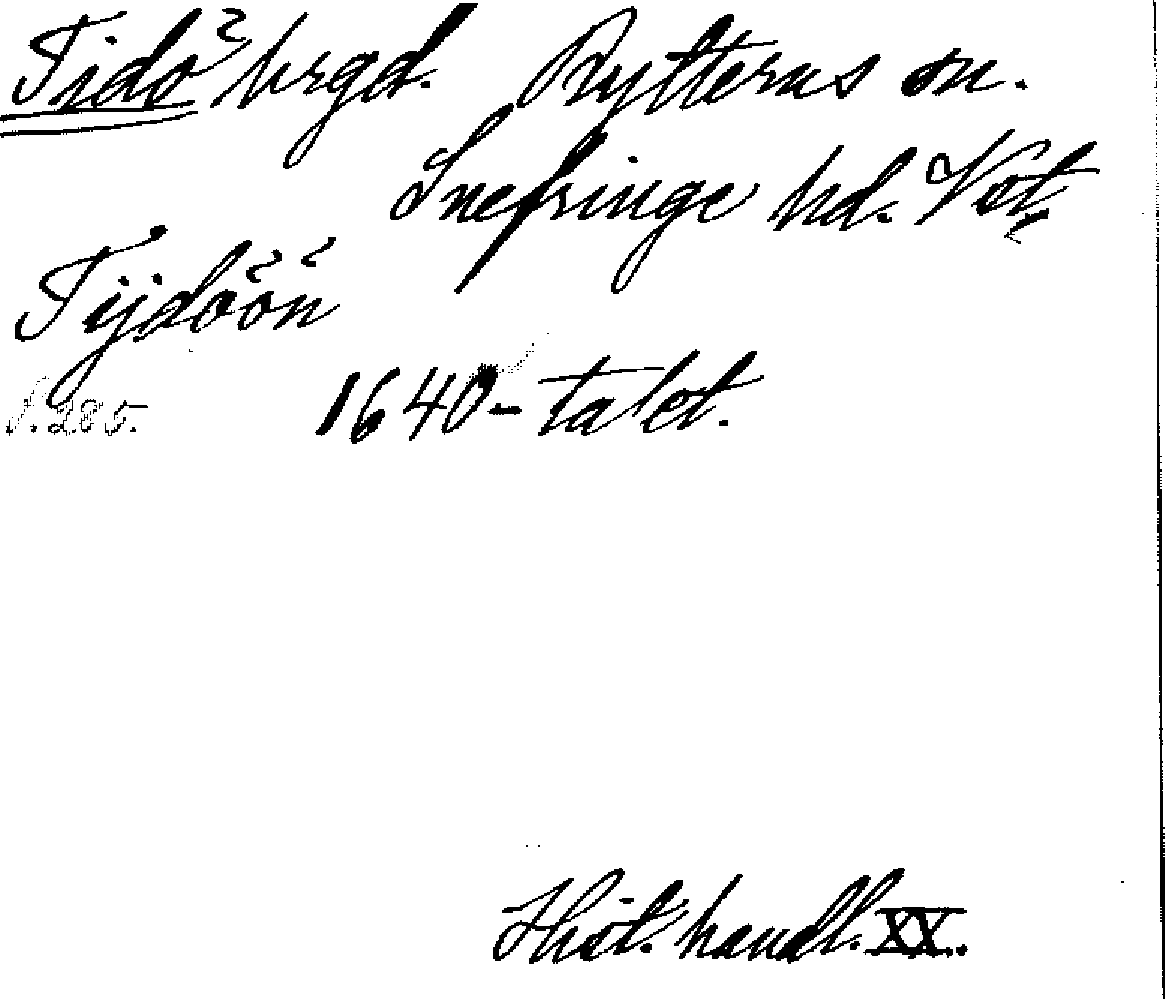 Tidö hrgd. Rytterns sn.
Snefringe hd. Vstm.
Tijdöön
s. 285. 1640-talet.
Hist. handl. XX.